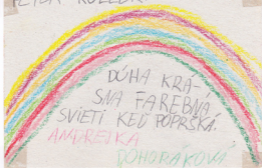 DÚHA KRÁ-
SNA FAREBNÁ,
SVIETI KEĎ POPRŠKÁ.
ANDREJKA
POHORÁKOVÁ